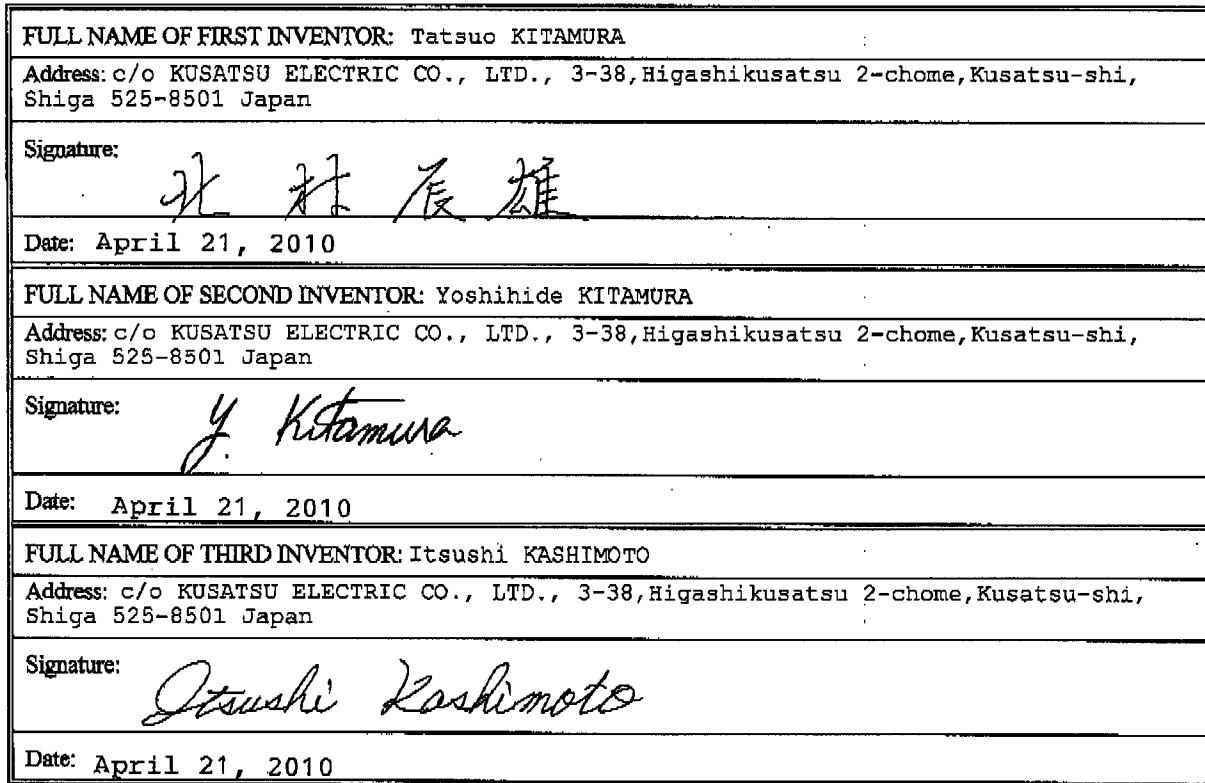 FULL NAME OF FIRST INVENTOR: Tatsuo KITAMURA
Address: c/o KUSATSU ELECTRIC CO., LTD., 3-38,Higashikusatsu 2-chome,Kusatsu-shi,
Shiga 525-8501 Japan
Signature:
北村辰雄
Date: April 21, 2010
FULL NAME OF SECOND INVENTOR: Yoshihide KITAMURA
Address: c/o KUSATSU ELECTRIC CO., LTD., 3-38,Higashikusatsu 2-chome,Kusatsu-shi,
Shiga 525-8501 Japan
Signature:
Y. Kitamura
Date: April 21, 2010
FULL NAME OF THIRD INVENTOR: Itsushi KASHIMOTO
Address: c/o KUSATSU ELECTRIC CO., LTD., 3-38,Higashikusatsu 2-chome,Kusatsu-shi,
Shiga 525-8501 Japan
Signature:
Itsushi Kashimoto
Date: April 21, 2010